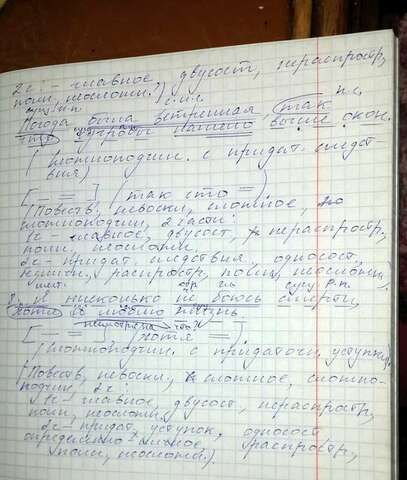 2ч. - главное, двусост, нераспростр,
полн, неослож.)
сущ. и.п. с.и.с. п.с.
Погода была ветренная, так
что сугробы нашего выше окон.
(сложноподчин. с придат. следст-
вия)
[- =] (так что =)
(Повеств, невоскл, сложное,
сложноподчин, 2 части:
1ч - главное, двусост, нераспростр,
полн, неослож,
2ч - придат. следствия, односост,
распростр, полн, неослож.)
мест. гл сущ. Р.п.
Я нисколько не боюсь смерти,
хотя и люблю жизнь
несмотря на что
[- =] (хотя =)
(сложноподчин. с придаточн. уступки)
(Повеств, невоскл, сложное, сложно-
подчин, 2ч:
1ч - главное, двусост, нераспростр,
полн, неослож.
2ч - придат, уступок, односост
определенно личное, распростр,
полн, неослож.)